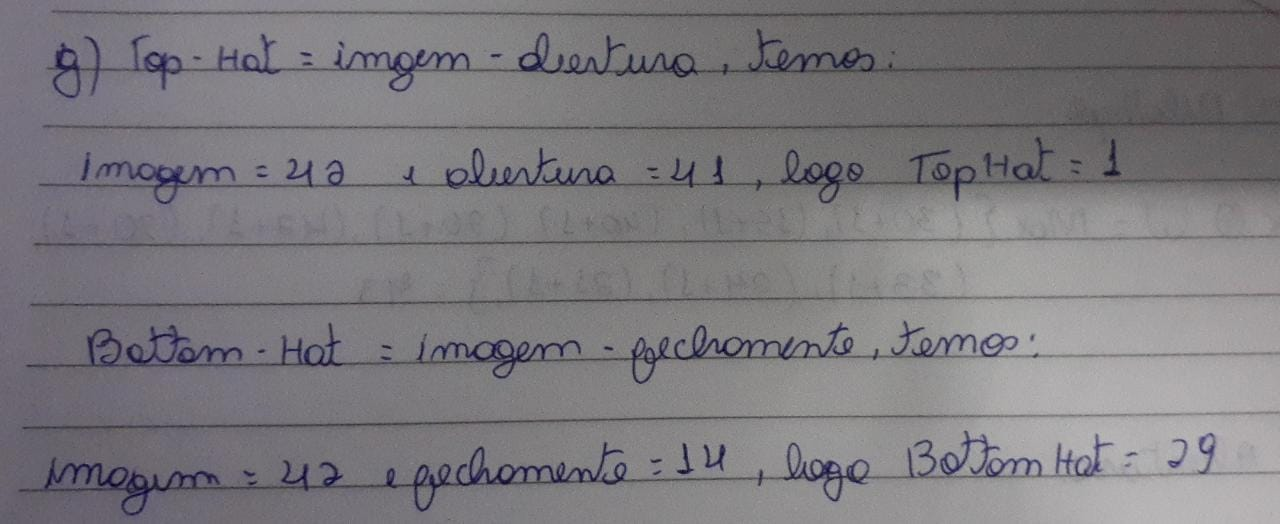 g) Top-Hat = imgem - abertura, temos:
imagem = 42 e abertura = 41, logo TopHat = 1
Bottom-Hat = imagem - fechamento, temos:
imagem = 42 e fechamento = 14, logo BottomHat = 29